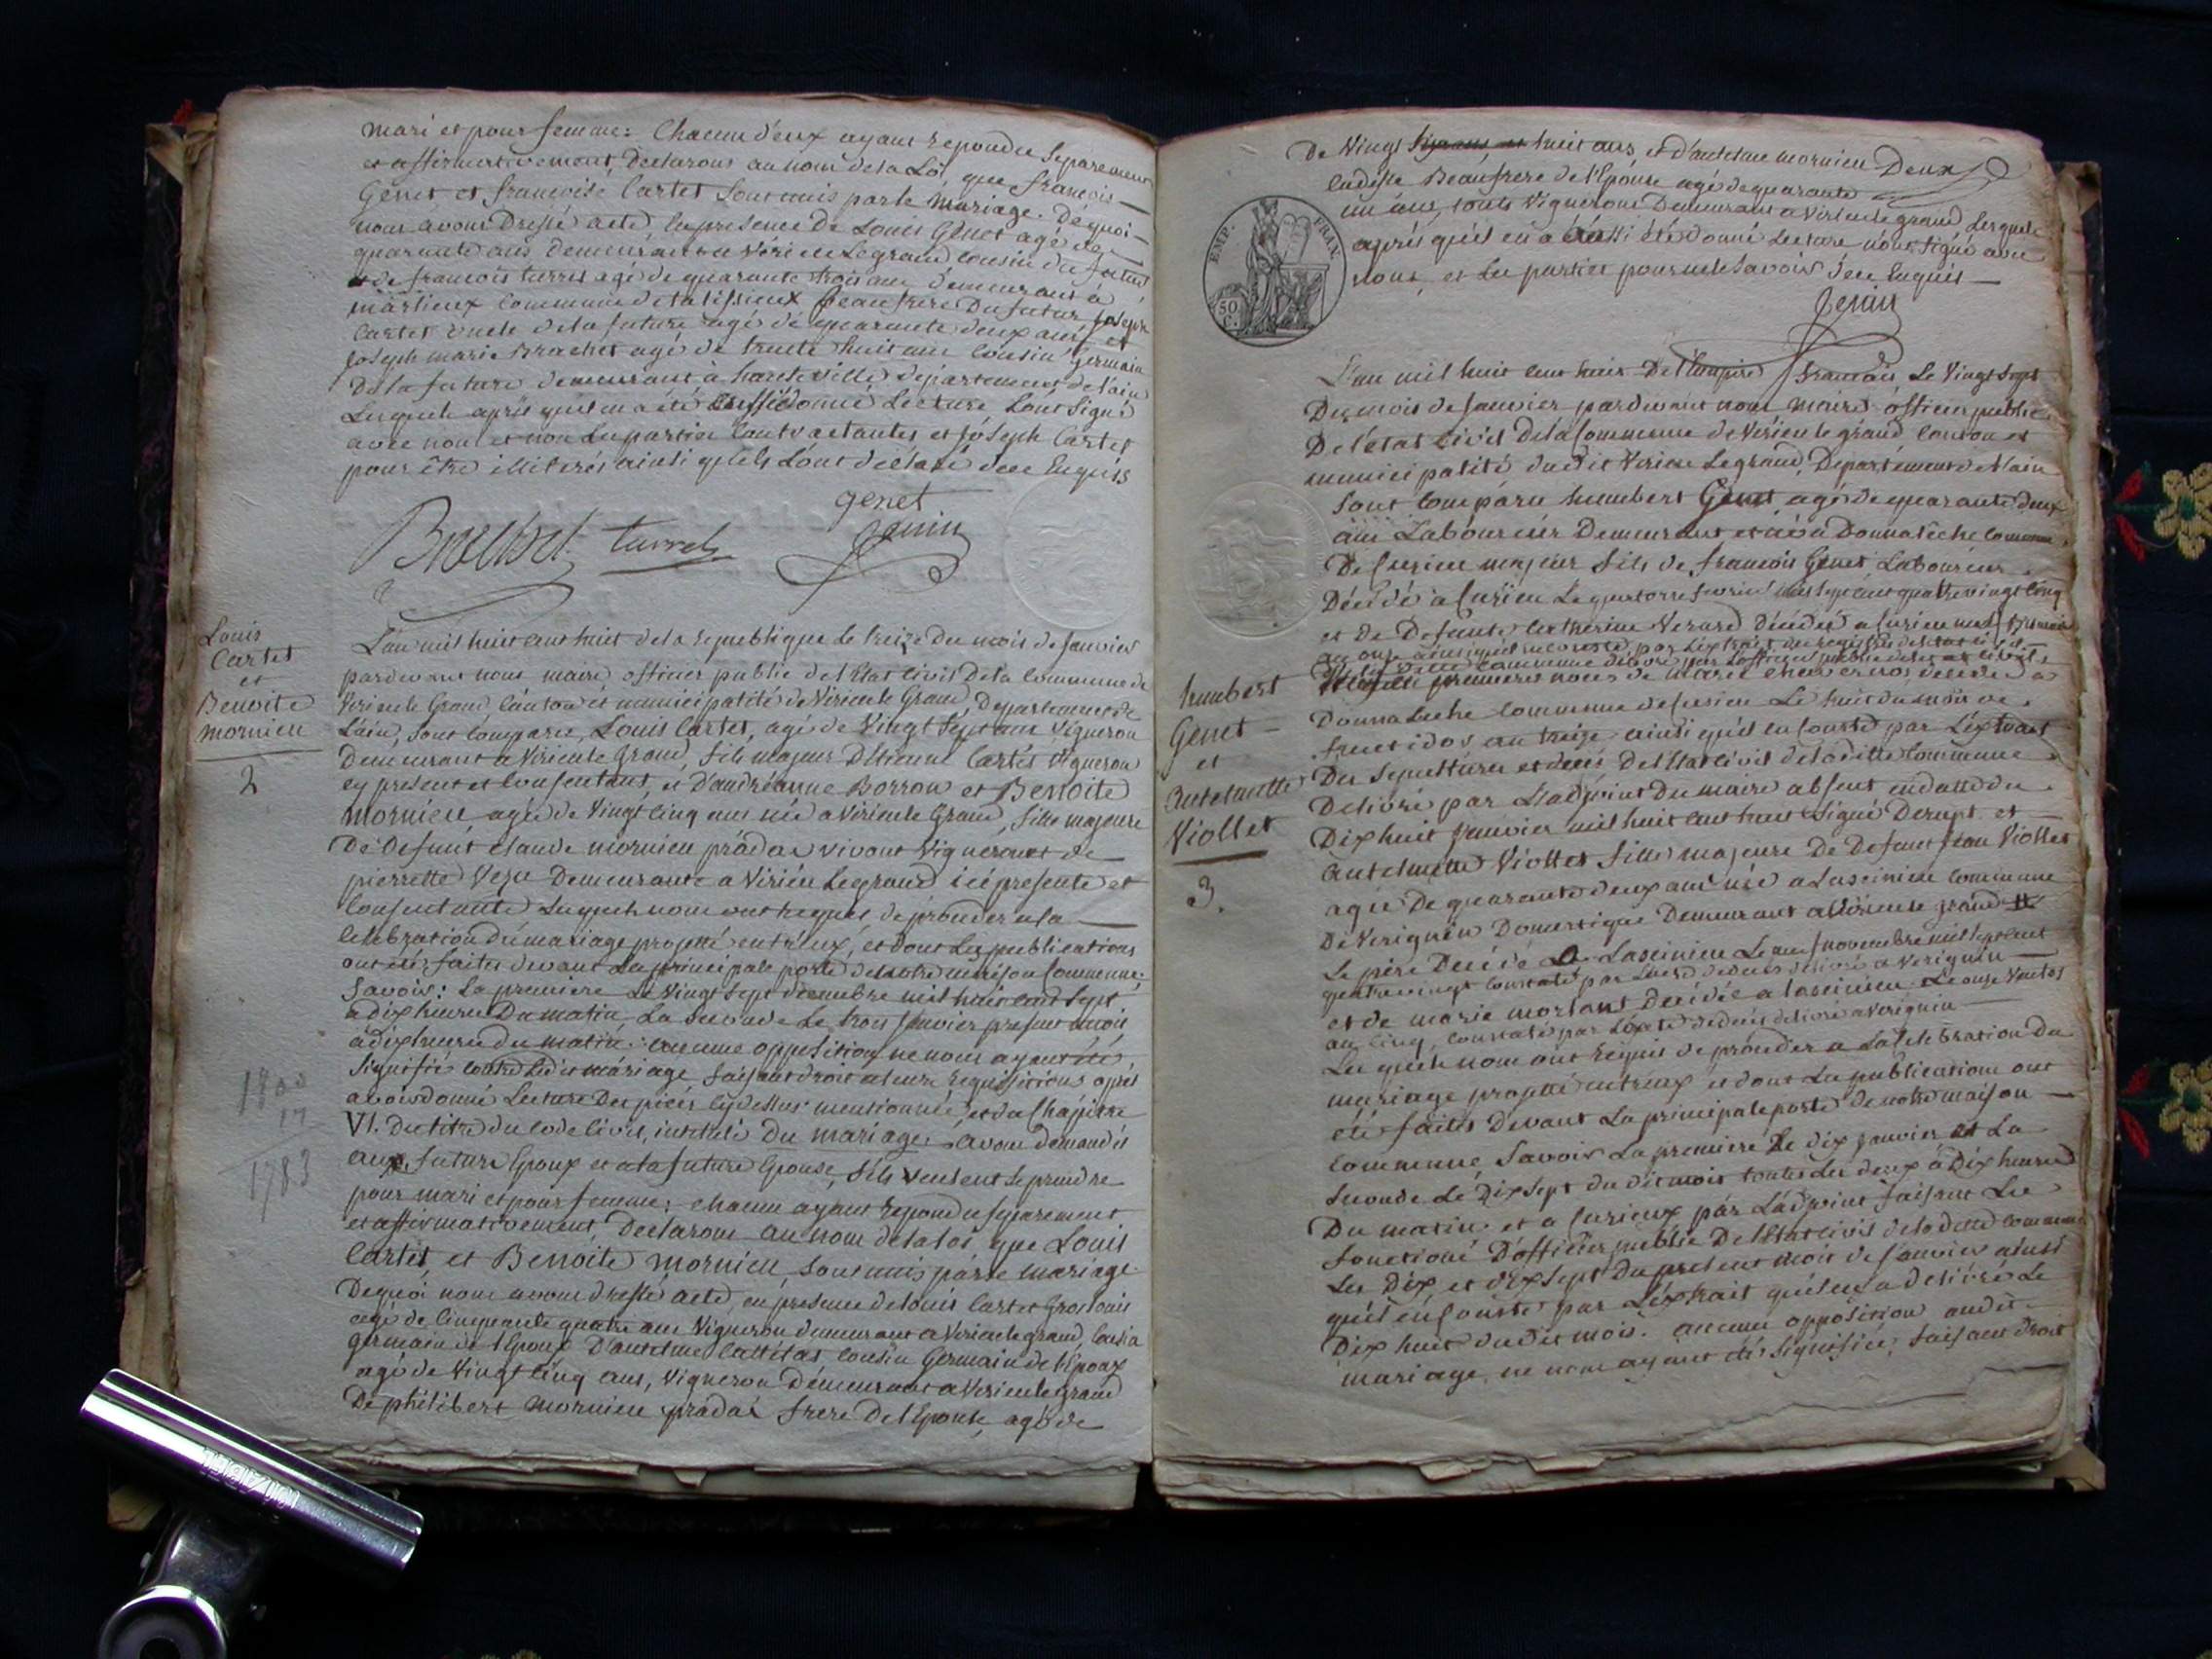 mari et pour femme: Chacun d'eux ayant repondu separement
et affirmativement, Declarons au nom de la Loi que francois
Genet et francoise Cartet sont unis par le Mariage. De quoi
nous avons Dressé acte en presence de Louis Genet agé de
quarante ans demeurant a Virieu Le grand cousin du futur,
de francois turrel agé de quarante trois ans demeurant à
commune de talissieux Beaufrere Du futur joseph
Cartet oncle de la future agé de quarante deux ans et
joseph marie Brachet agé de trente huit ans cousin Germain
De la future demeurant à hauteville département de l'ain
Lesquels après qu'il en a été donné Lecture sont signé
avec nous et non Les parties contractantes et joseph Cartet
pour être illiterés ainsi qu'ils l'ont déclaré de ce Enquis
genet
Brachet turrel Genin
Louis
Cartet
et
Benoite
mornieu
2
L'an mil huit cent huit de la republique Le treize du mois de janvier
pardevant nous maire officier public de l'Etat civil De la commune de
Virieu le Grand Canton et municipalité de Virieu le Grand, Departement de
L'ain, sont comparu, Louis Cartet, agé de Vingt Sept ans Vigneron
Demeurant a Virieu le grand, fils majeur D'Etienne Cartet Vigneron
cy présent et consentant, et D'andréanne Borron et Benoite
Mornieu, agée de Vingt cinq ans née a Virieu le Grand, fille majeure
De Defunt claude mornieu pradai vivant Vigneron et de
pierrette Demeurante a Virieu Legrand ici presente et
consentante Lesquels nous ont requis de proceder a la
celebration du mariage projetté entr'eux, et dont Les publications
ont été faites devant La principale porte de notre maison Commune;
Savoir: La premiere Le Vingt Sept decembre mil huit cent Sept
a dix heures Du matin, La seconde Le trois Janvier present mois,
à dix heures du matin. aucune opposition ne nous ayant été
signifié contre Ledit mariage faisant droit a leurs requisitions après
avoir donné Lecture Des pieces cy dessus mentionnée et du Chapitre
VI. Du titre du code Civil, intitulé Du mariage, avons demandés
aux future Epoux et a la future Epouse, s'ils veulent se prendre
pour mari et pour femme: chacun ayant repondu separement
et affirmativement, Declarons au nom de la loi, que Louis
Cartet, et Benoite Mornieu, sont unis par le mariage.
De quoi nous avons dressé acte, en presence de Louis Cartet Gros louis
agé de Cinquante quatre ans Vigneron demeurant a Virieu le grand, Cousin
germain de l'Epoux D'antelme cousin Germain de l'Epoux
agé de Vingt cinq ans, Vigneron Demeurant a Virieu le Grand
De philibert mornieu pradai frere De l'Epouse, agé de
1800
17
1783
De Vingt huit ans, et d'antelme mornieu Deux
Beaufrere de l'Epouse agé de quarante
un ans, touts Vignerons Demeurant a Virieu le grand Lesquels
après qu'il en a été donné Lecture n'ont signé avec
nous, et Les parties pour ne le savoir de ce Enquis
Genin
EMP. FRAN.
50
C.
L'an mil huit cent huit De L'empire francais, Le Vingt Sept
Du mois de janvier pardevant nous Maire officier public
De l'état civil De la Commune de Virieu le grand Canton et
municipalité dudit Virieu Le grand, Département de l'ain
sont comparu humbert Genet agé de quarante deux
ans Laboureur Demeurant et né a Donnalèche commune
De Cuzieu majeur fils de francois Genet Laboureur
Décédé a Cuzieu Le quatorze fevrier mil sept cent quatre vingt cinq
et de Defunte Catherine Decédée a Cuzieu
humbert
Genet
et
antelmette
Viollet
3.
Donnaleche commune de Cusieu Le huit du mois de
fructidor, an treize ainsi qu'il en conste par L'extrait
Des Sepultures et décès De l'Etat civil de ladite Commune
Délivré par L'adjoint Du maire absent en datte du
Dix huit janvier mil huit cent huit signé Derupt. et
antelmette Viollet fille majeure De Defunt jean Viollet
agée De quarante deux ans née a Lascinieu commune
De Verignin Domestique Demeurant a Virieu le grand
Le père Decédé a Lascinieu Le novembre mil sept cent
quatre vingt constaté par L'acte de decès délivré a Verignin
et de marie Decédée a Lascinieu Le onze Ventos
an cinq, constaté par L'acte de decès delivré a Verignin
Lesquels nous ont requis de procéder a La Celebration Du
mariage projetté entreux et dont Les publications ont
été faites Devant La principale porte De notre maison
Commune, Savoir La premiere Le dix janvier et La
Seconde Le Dix Sept du dit mois toutes Les deux à Dix heures
Du matin et a Cuzieux par L'adjoint faisant Les
fonctions D'officier public De l'Etat civil de la ditte commune
Les Dix, et Dix Sept Du present mois de Janvier ainsi
qu'il en conste par L'extrait qu'il en a delivré Le
Dix huit dudit mois. aucune opposition audit
mariage, ne nous ayant été signifiée; faisant droit